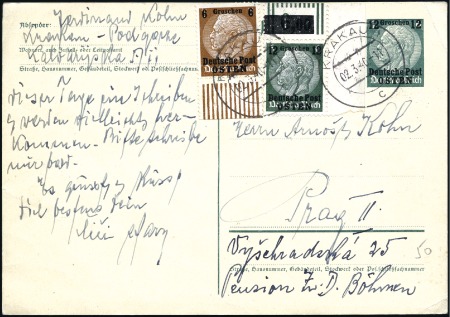 Absender: Ferdinand Kohn
Krakau - Podgorze
Wohnort, auch Zustell- oder Leitpostamt
Kalwaryjska
Straße, Hausnummer, Gebäudeteil, Stockwerk oder Postschließfachnummer
dieser Tage ein Schreiben
werden vielleicht her-
kommen. Bitte schreibe
nur bald.
Es grüsst & küsst
Dich bestens Dein
6 Groschen 6
Deutsche Post
OSTEN
12 Groschen 12
Deutsche Post
OSTEN
KRAKAU
02.3.40
c
12 Groschen 12
Deutsche Post
OSTEN
Herrn Arnošt Kohn
Prag II.
Vyšehradská 25
Straße, Hausnummer, Gebäudeteil, Stockwerk oder Postschließfachnummer
Pension
Böhmen
50